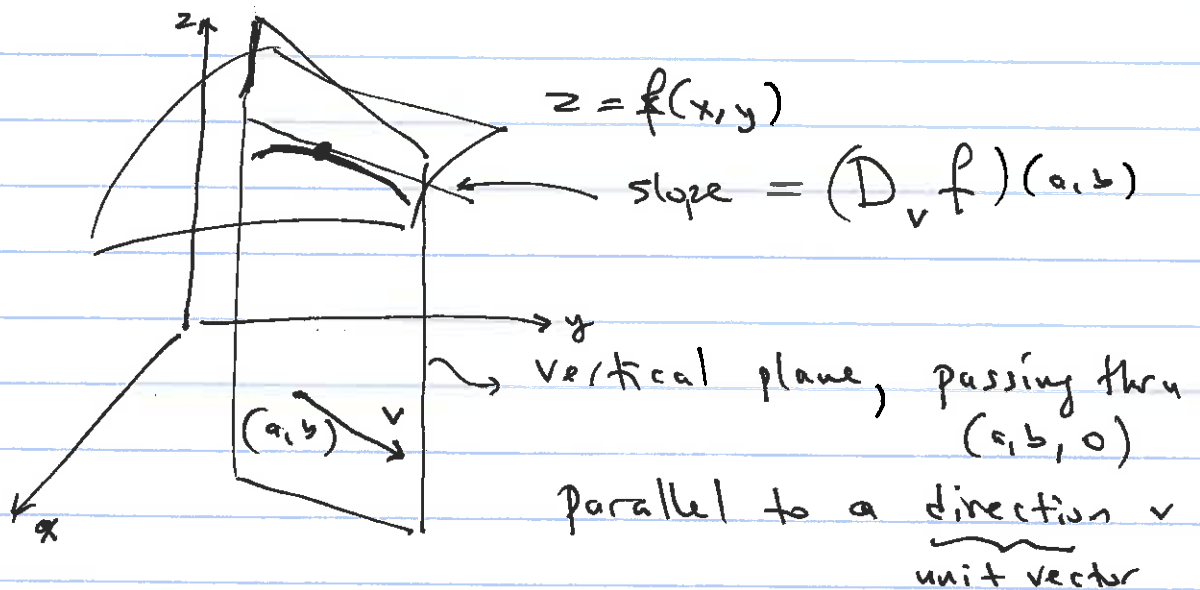 z
z = f(x, y)
slope = (D_v f)(a, b)
y
vertical plane, passing thru
(a, b)
v
(a, b, 0)
parallel to a direction v
x
unit vector